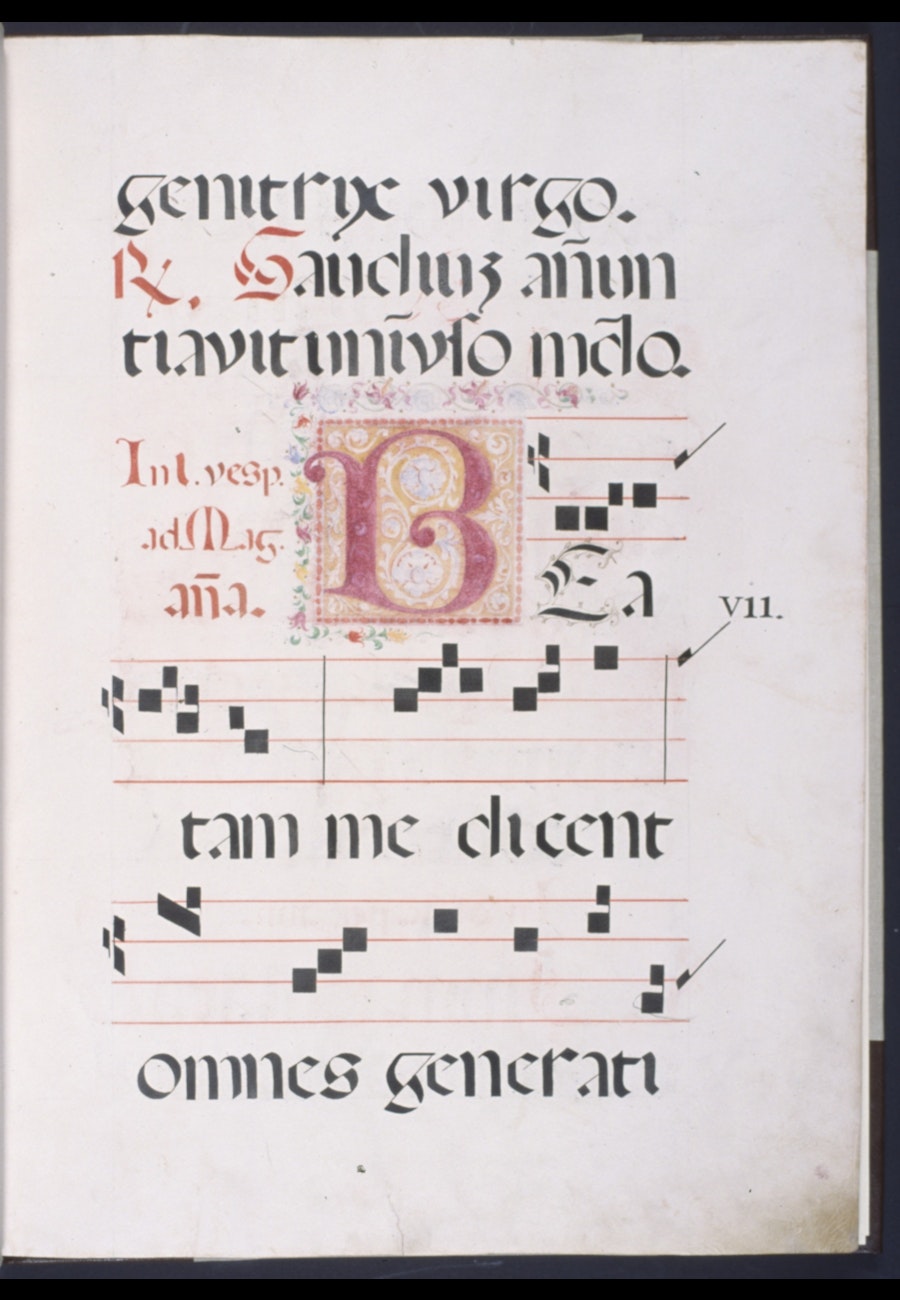 genitrix virgo.
℟. Gaudiuʒ añun
tiavit unīvſo mdō.
In I. vesp.
ad Mag.
aña.
BEa
VII.
tam me dicent
omnes generati